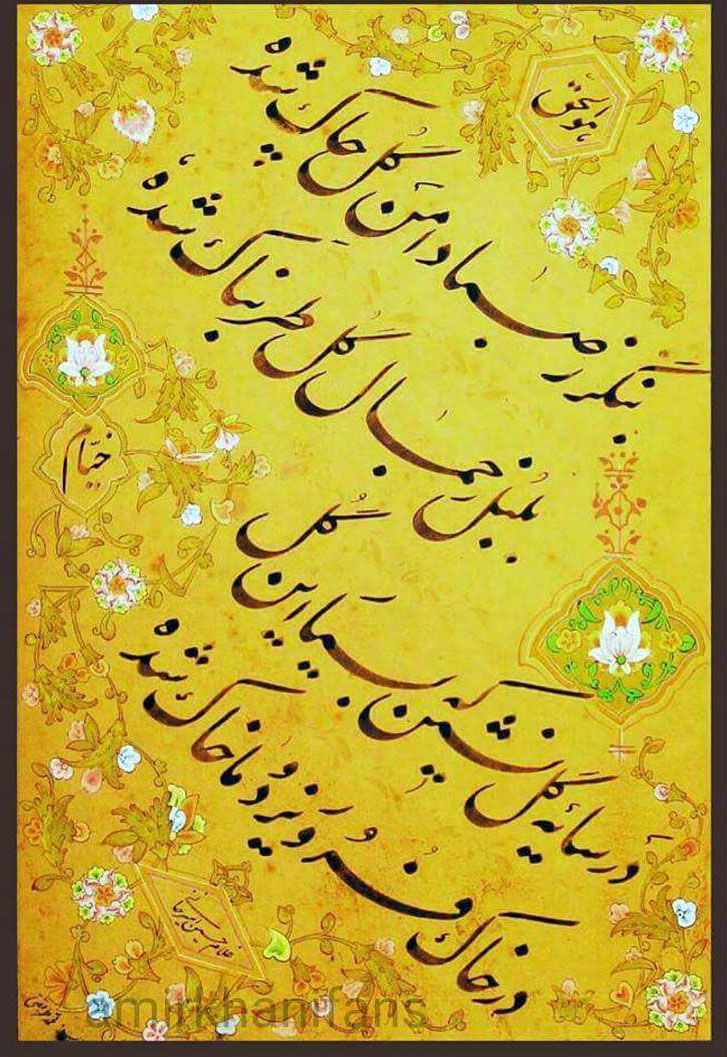 هوالحق
بنگر ز صبا دامن گل چاک شده
بلبل ز جمال گل طربناک شده
خیام
در سایهٔ گل نشین که بسیار این گل
در خاک فرو ریزد و ما خاک شده
غلامحسین امیرخانی
amirkhanifans